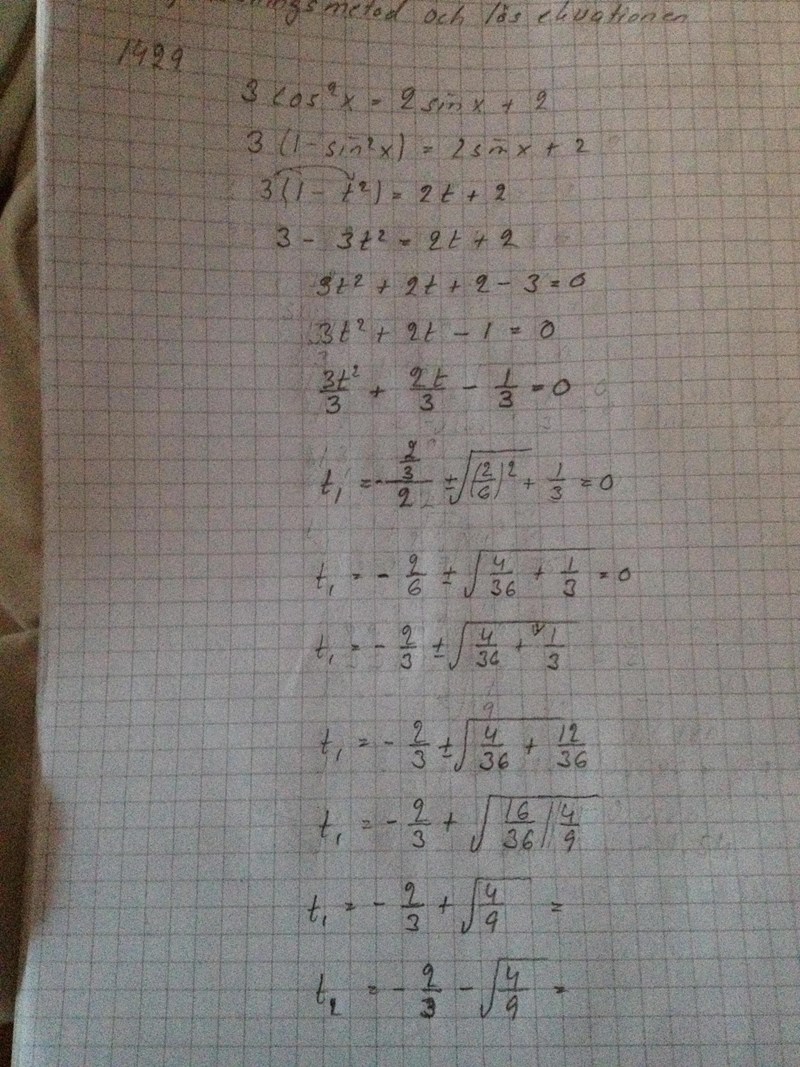 metod och lös ekvationen
1429
3 cos²x = 2 sin x + 2
3 (1 - sin²x) = 2 sin x + 2
3 (1 - t²) = 2t + 2
3 - 3t² = 2t + 2
3t² + 2t + 2 - 3 = 0
3t² + 2t - 1 = 0
3t²/3 + 2t/3 - 1/3 = 0
t₁ = - (2/3)/2 ± √((2/6)² + 1/3 = 0
t₁ = - 2/6 ± √(4/36 + 1/3) = 0
t₁ = - 2/3 ± √(4/36 + 1/3)
t₁ = - 2/3 ± √(4/36 + 12/36)
t₁ = - 2/3 + √(16/36 | 4/9)
t₁ = - 2/3 + √(4/9) =
t₂ = - 2/3 - √(4/9) =